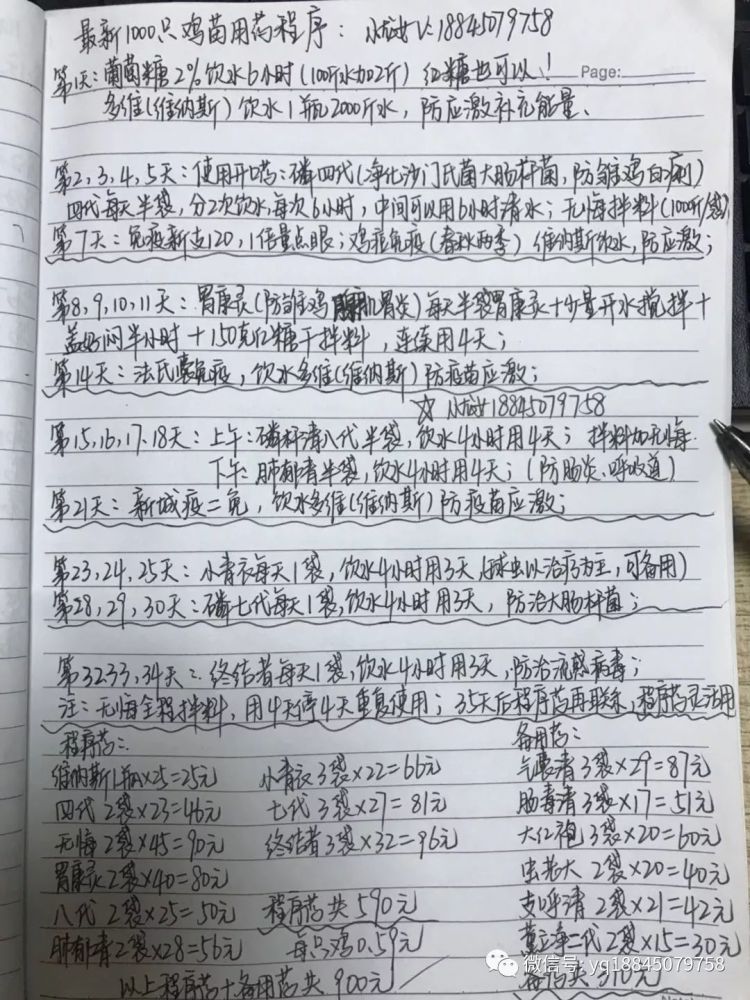 最新1000只鸡苗用药程序：小城女V：18845079758
Page:
第1天：葡萄糖2%饮水6小时（100斤水加2斤）红糖也可以！
多维（维纳斯）饮水1瓶2000斤水，防应激补充能量、
第2，3，4，5天：使用开口药：磷四代（净化沙门氏菌大肠杆菌，防雏鸡白痢）
四代每天半袋，分2次饮水，每次6小时，中间可以用6小时清水；无悔拌料（100斤/袋）
第7天：免疫新支120，1倍量点眼；鸡痘免疫（春秋两季）维纳斯饮水，防应激；
第8，9，10，11天：胃康灵（防雏鸡腺肌胃炎）每天半袋胃康灵+少量开水搅拌+
盖好闷半小时+150克红糖干拌料，连续用4天；
第14天：法氏囊免疫，饮水多维（维纳斯）防疫苗应激；
☆ 18845079758
第15，16，17、18天：上午：磷杆清八代半袋，饮水4小时用4天；拌料加无悔、
下午：肺郁青半袋，饮水4小时用4天；（防肠炎、呼吸道）
第21天：新城疫二免，饮水多维（维纳斯）防疫苗应激；
第23，24，25天：小青衣每天1袋，饮水4小时用3天（球虫以治疗为主，可备用）
第28，29，30天：磷七代每天1袋，饮水4小时用3天，防治大肠杆菌；
第32 33，34天：终结者每天1袋，饮水4小时用3天，防治流感病毒；
注：无悔全程拌料，用4天停4天重复使用；35天后程序药再联系，程序药灵活用
程序药：
维纳斯1瓶×25=25元 小青衣3袋×22=66元
四代 2袋×23=46元 七代 3袋×27=81元
无悔 2袋×45=90元 终结者3袋×32=96元
胃康灵2袋×40=80元
八代 2袋×25=50元 程序药共590元
肺郁青2袋×28=56元 每只鸡0.59元
以上程序药+备用药共900元
备用药：
气囊清3袋×29=87元
肠毒清3袋×17=51元
大红袍3袋×20=60元
虫老大 2袋×20=40元
支呼清 2袋×21=42元
二代2袋×15=30元
备药共310元
微信号: yq18845079758